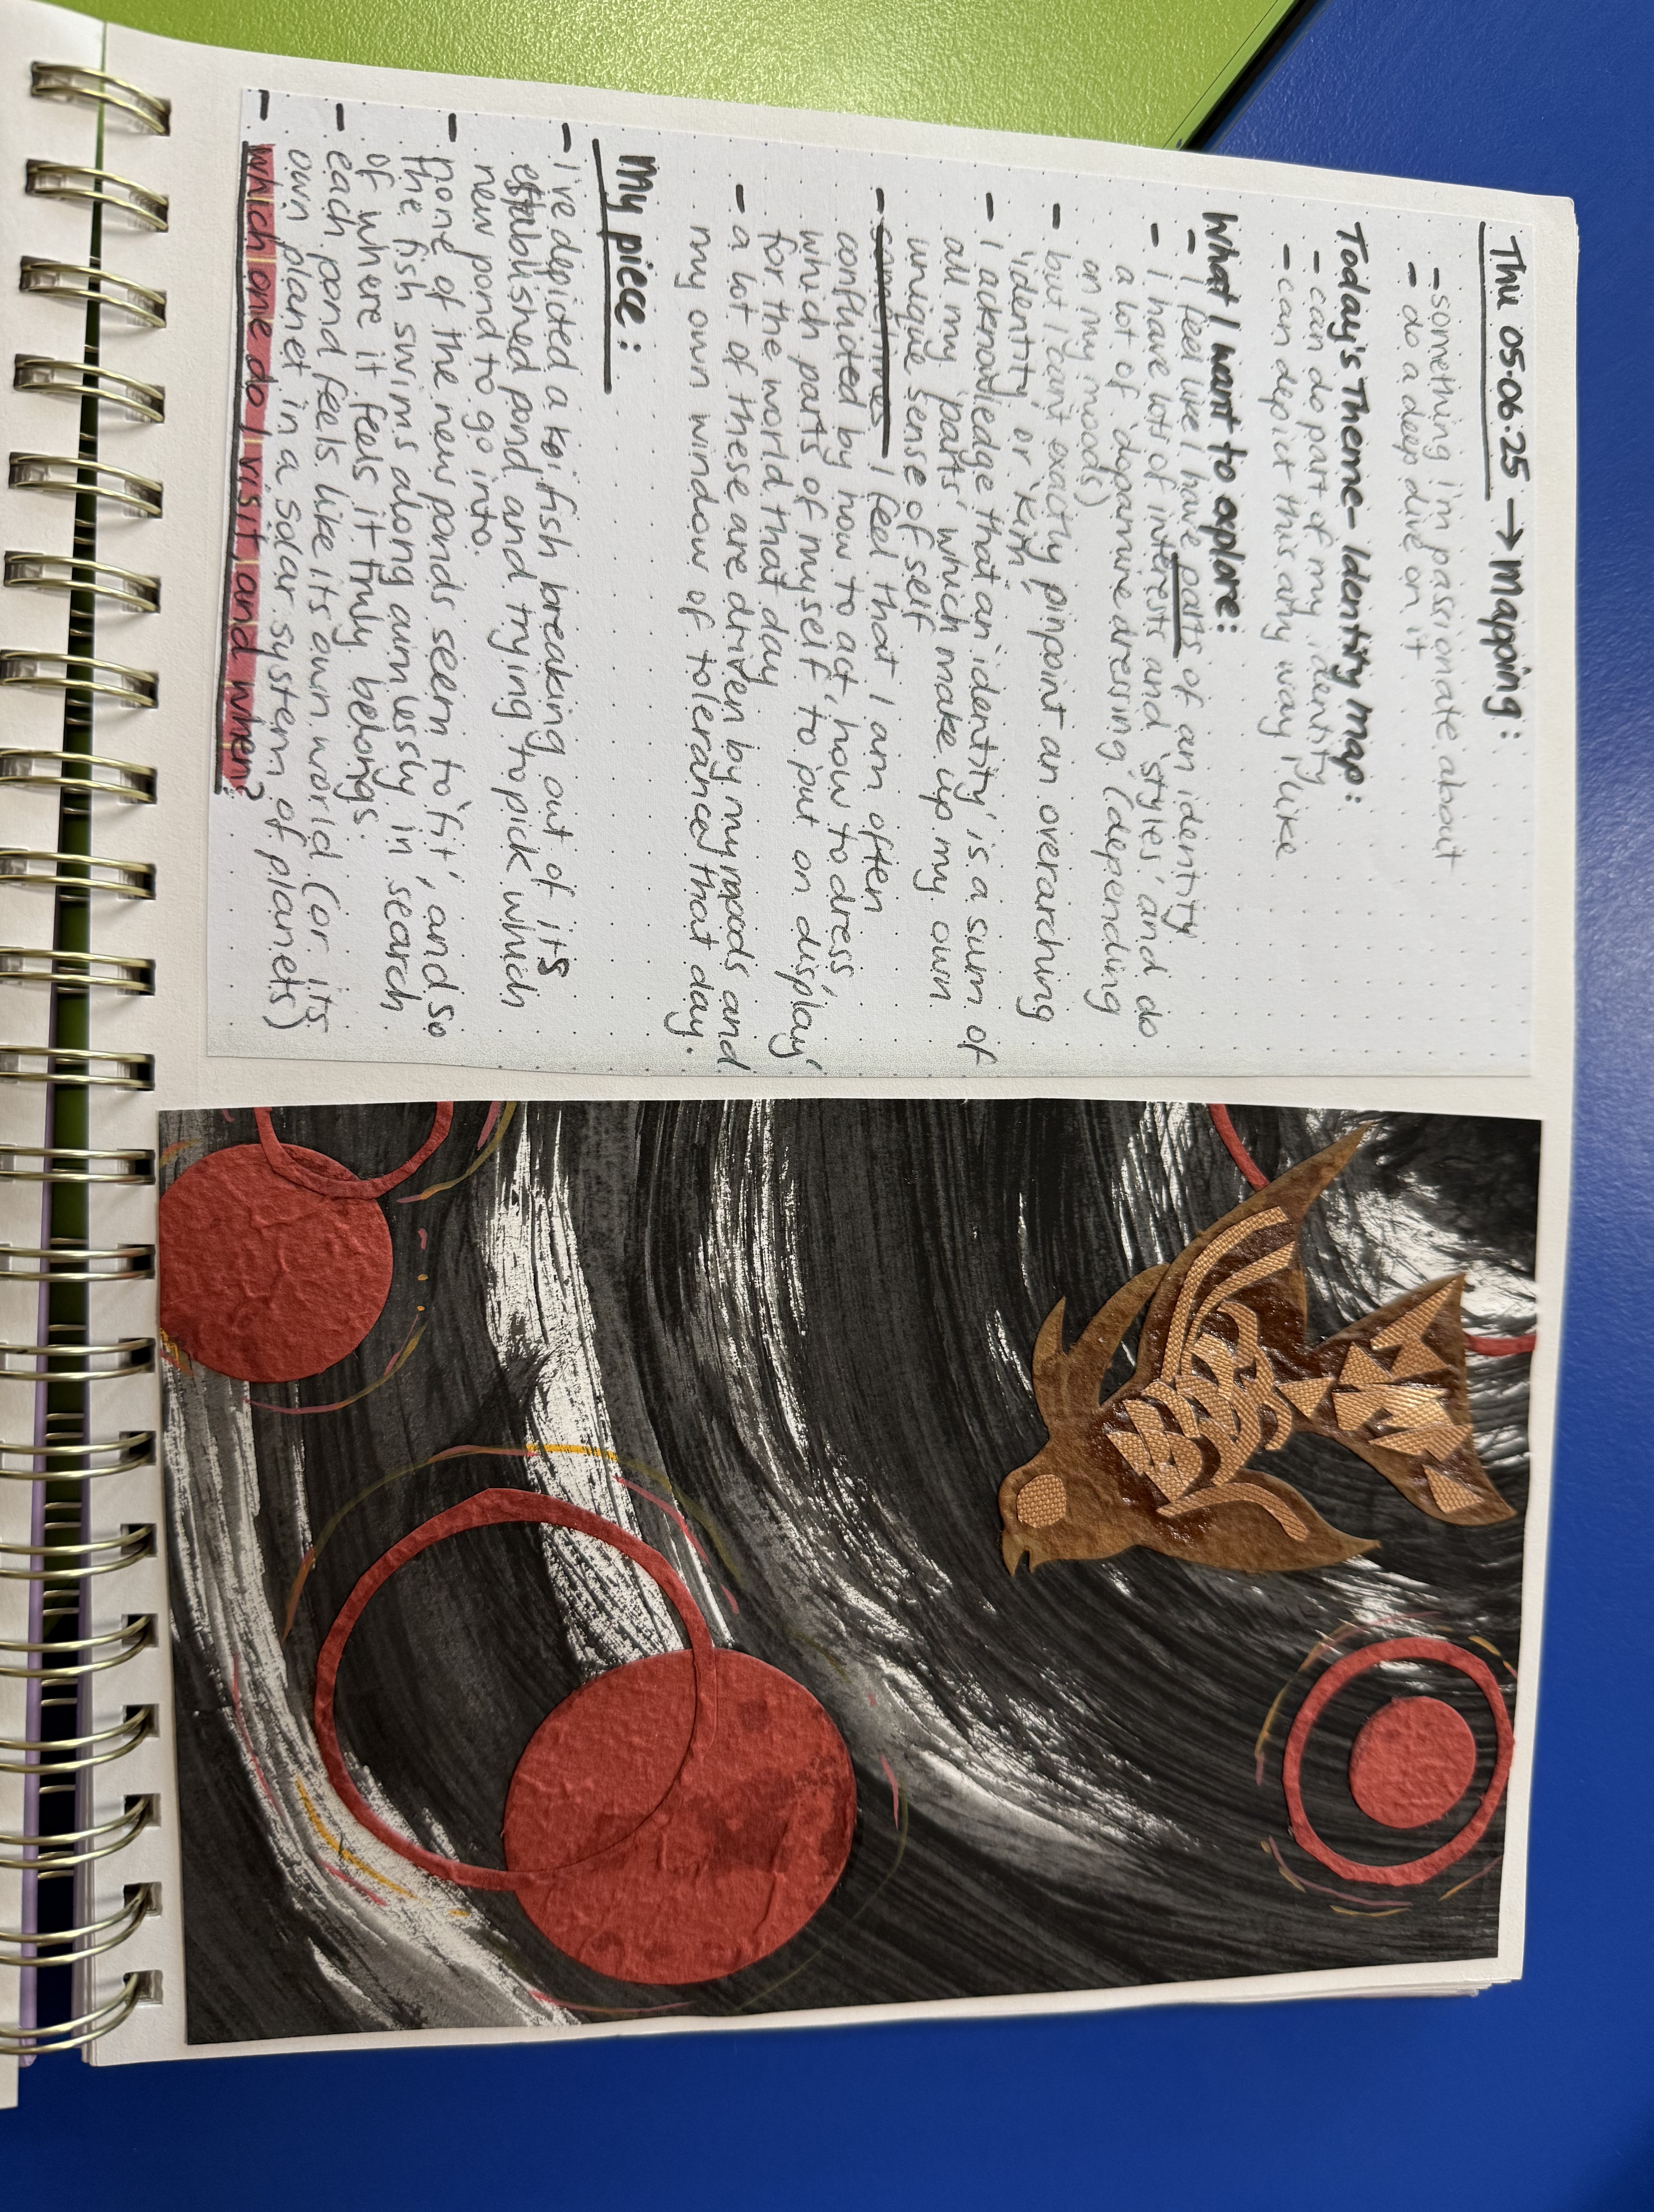 Thu 05.06.25 → Mapping:
- something i'm passionate about
- do a deep dive on it
Today's Theme - Identity map:
- can do part of my identity
- can depict this any way I like
What I want to explore:
- I feel like I have parts of an identity
- I have lots of interests and 'styles' and do
a lot of 'dopamine dressing' (depending
on my moods)
- but I can't exactly pinpoint an overarching
'identity' or 'kim'
- I acknowledge that an 'identity' is a sum of
all my 'parts' which make up my own
unique sense of self
- sometimes I feel that I am often
conflicted by how to act, how to dress,
which parts of myself to put on 'display'
for the world that day
- a lot of these are driven by my moods and
my own window of tolerance that day.
My piece:
- I've depicted a koi fish breaking out of its
established pond and trying to pick which
new pond to go into.
- none of the new ponds seem to 'fit', and so
the fish swims along aimlessly in search
of where it feels it truly belongs.
- each pond feels like its own world (or its
own planet in a solar system of planets)
- which one do I visit, and when?